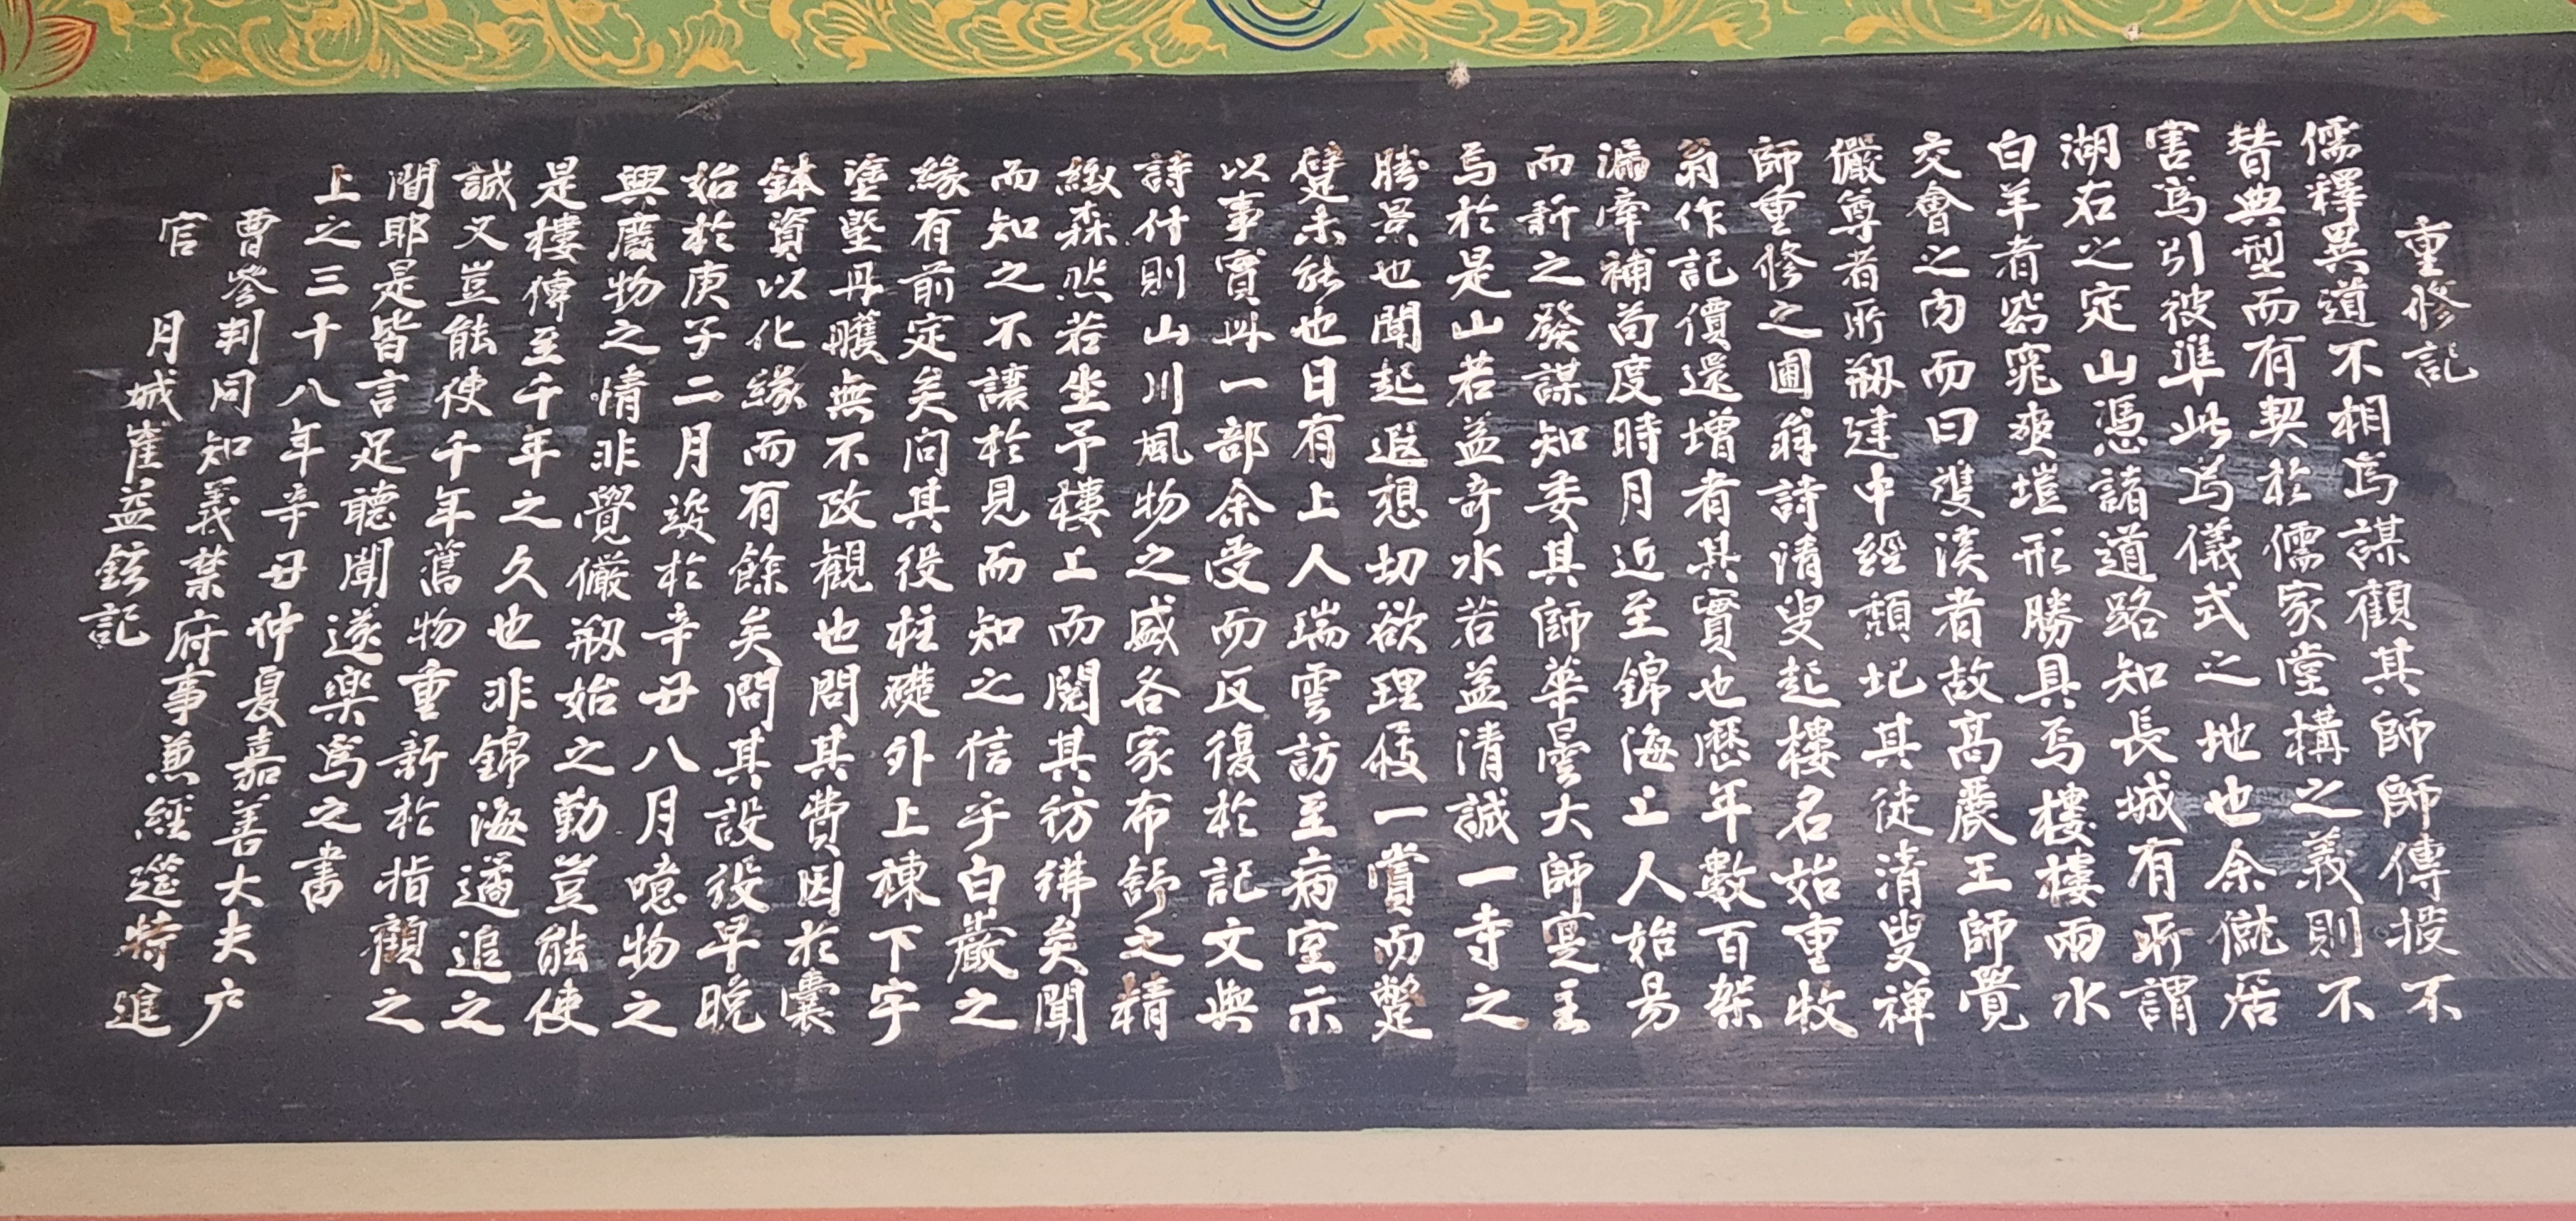 重修記
儒釋異道不相爲謀顧其師師傳授不
替典型而有契於儒家堂構之義則不
害爲引彼準此爲儀式之地也余僦居
湖右之定山憑諸道路知長城有所謂
白羊者窈窕爽塏形勝具焉樓樓兩水
交會之内而曰雙溪者故高麗王師覺
儼尊者所刱建中經頹圮其徒清叟禅
師重修之圃翁詩清叟起樓名始重牧
翁作記價還增者其實也歷年數百架
漏牽補苟度時月近至錦海上人始易
而新之發謀知委其師華曇大師寔主
焉於是山若益奇水若益清誠一寺之
勝景也聞起遐想切欲理屐一賞而蹩
躄未能也日有上人瑞雲訪至病室示
以事實與一部余受而反復於記文與
詩付則山川風物之盛各家布舒之精
緻森然若坐予樓上而閱其彷彿矣聞
而知之不讓於見而知之信乎白巖之
緣有前定矣问其役柱礎外上棟下宇
塗墍丹雘無不改観也問其費因於囊
鉢資以化緣而有餘矣問其設役早晚
始於庚子二月竣於辛丑八月噫物之
興廢物之情非覺儼刱始之勤豈能使
是樓傳至千年之久也非錦海遹追之
誠又豈能使千年舊物重新於指顧之
間耶是皆言足聽聞遂樂爲之書
上之三十八年辛丑仲夏嘉善大夫户
曹參判同知義禁府事兼經筵特進
官 月城崔益鉉記